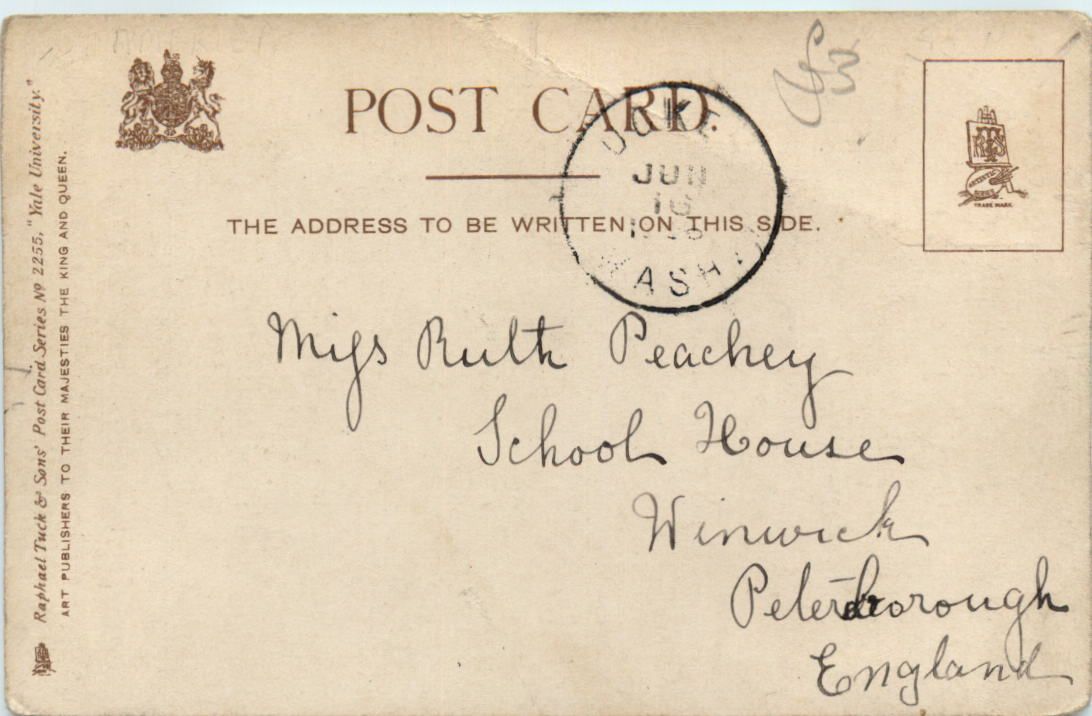 POST CARD.
THE ADDRESS TO BE WRITTEN ON THIS SIDE.
JUN
16
WASH
Miss Ruth Peachey
School House
Winwick
Peterborough
England
Raphael Tuck & Sons' Post Card Series No 2255, "Yale University."
ART PUBLISHERS TO THEIR MAJESTIES THE KING AND QUEEN.
TRADE MARK